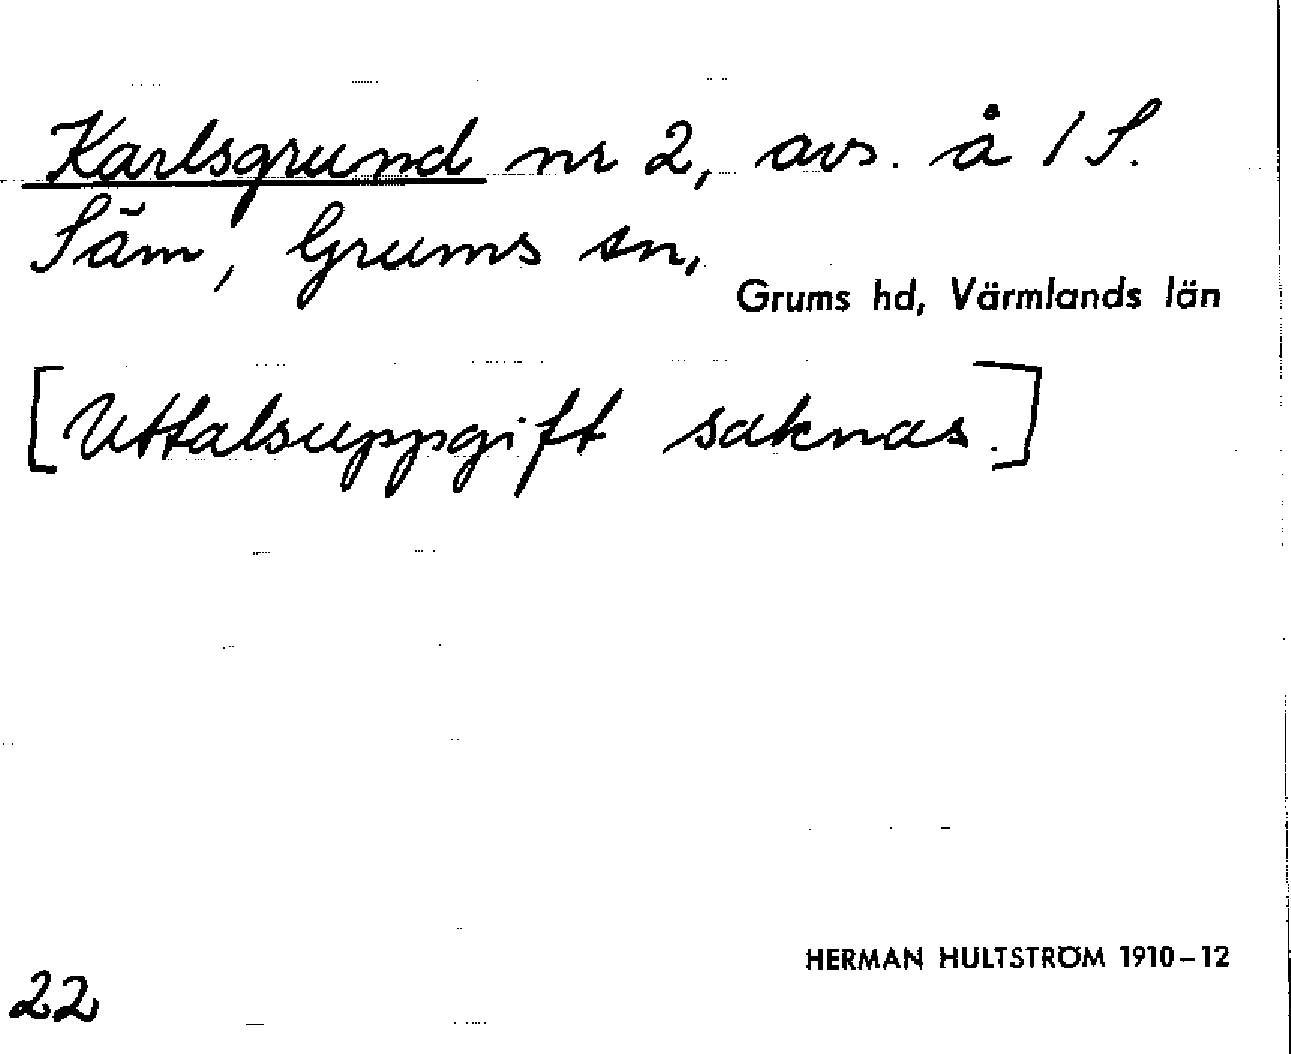 Karlsgrund nr 2, avs. å 1 S.
Säm, Grums sn,
Grums hd, Värmlands län
[Uttalsuppgift saknas.]
HERMAN HULTSTRÖM 1910-12
22